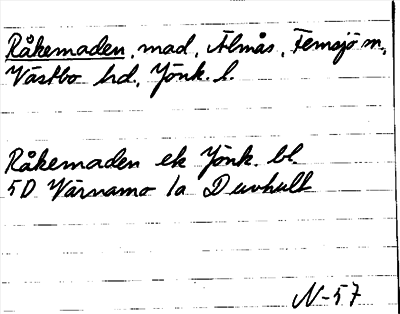 Råkemaden, mad, Älmås, Femsjö sn,
Västbo hd, Jönk. l.
Råkemaden ek Jönk. bl.
5D Värnamo 1a Duvhult
N-57